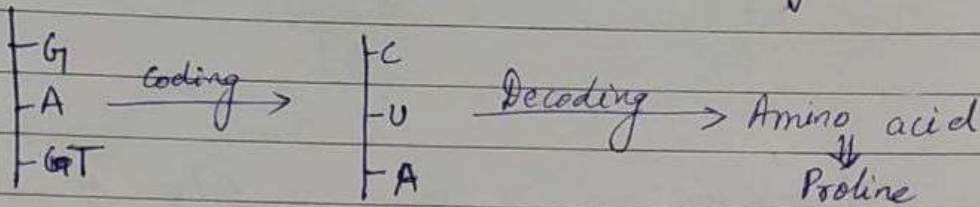 G C
A Coding U Decoding Amino acid
T A Proline